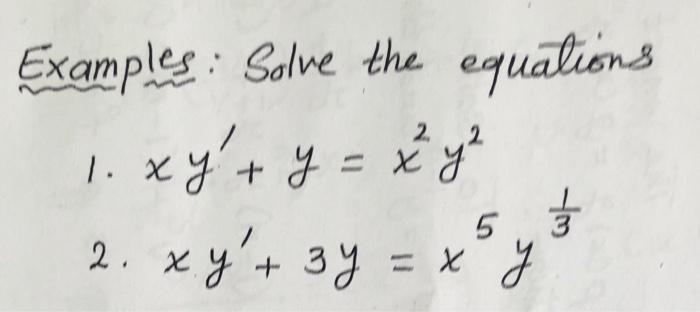 Examples: Solve the equations
1. xy' + y = x²y²
2. xy' + 3y = x⁵y^(1/3)